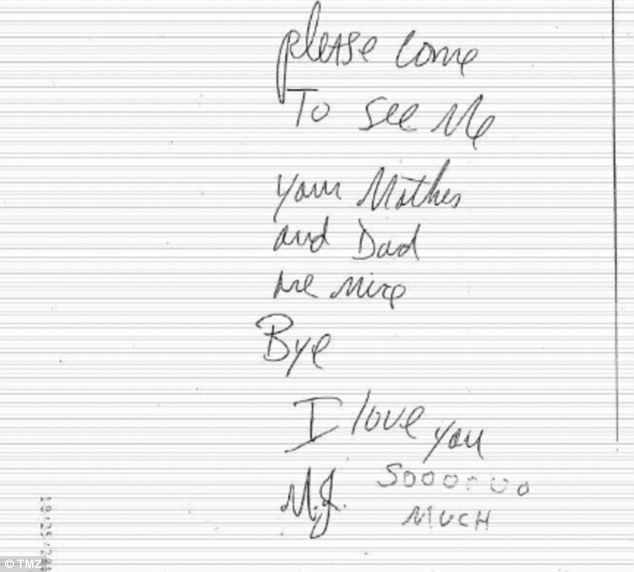 pleASe come
To see Me
your Mother
and Dad
are nice
Bye
I love you
M.J. Sooooooo
MUCH
© TMZ